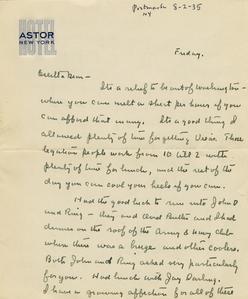 Postmark 8-2-35
NY
HOTEL
ASTOR
NEW YORK
Friday.
It's a relief to be out of Washington -
where you can melt a shirt per hour if you
can afford that many. It's a good thing I
allowed plenty of time for getting Visas. Those
legation people work from 10 till 2 with
plenty of time for lunch, and the rest of the
day you can cool your heels if you can.
Had the good luck to run into John D
and Ring - they and Aend Butler and I had
dinner on the roof of the Army & Navy Club
where there was a breeze and other coolers.
Both John and Ring asked very particularly
for you. Had lunch with Jay Darling.
I have a growing affection for all of these